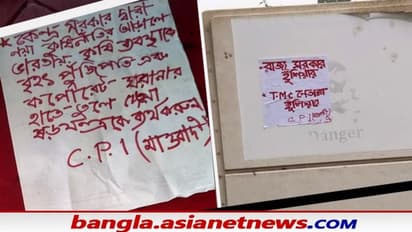 * কেন্দ্র সরকার দ্বারা
নয়া কৃষিনীতির আড়ালে
ভারতীয় কৃষি ব্যবস্থাকে
বৃহৎ পুঁজিপতি এবং
কর্পোরেট ঘরানার
হাতে তুলে দেওয়া
ষড়যন্ত্রকে ব্যর্থ করুন
C.P.I (মাওবাদী)
রাজ্য সরকার
হুঁশিয়ার
* T.M.C নেতারা
হুঁশিয়ার
C.P.I
Danger
bangla.asianetnews.com